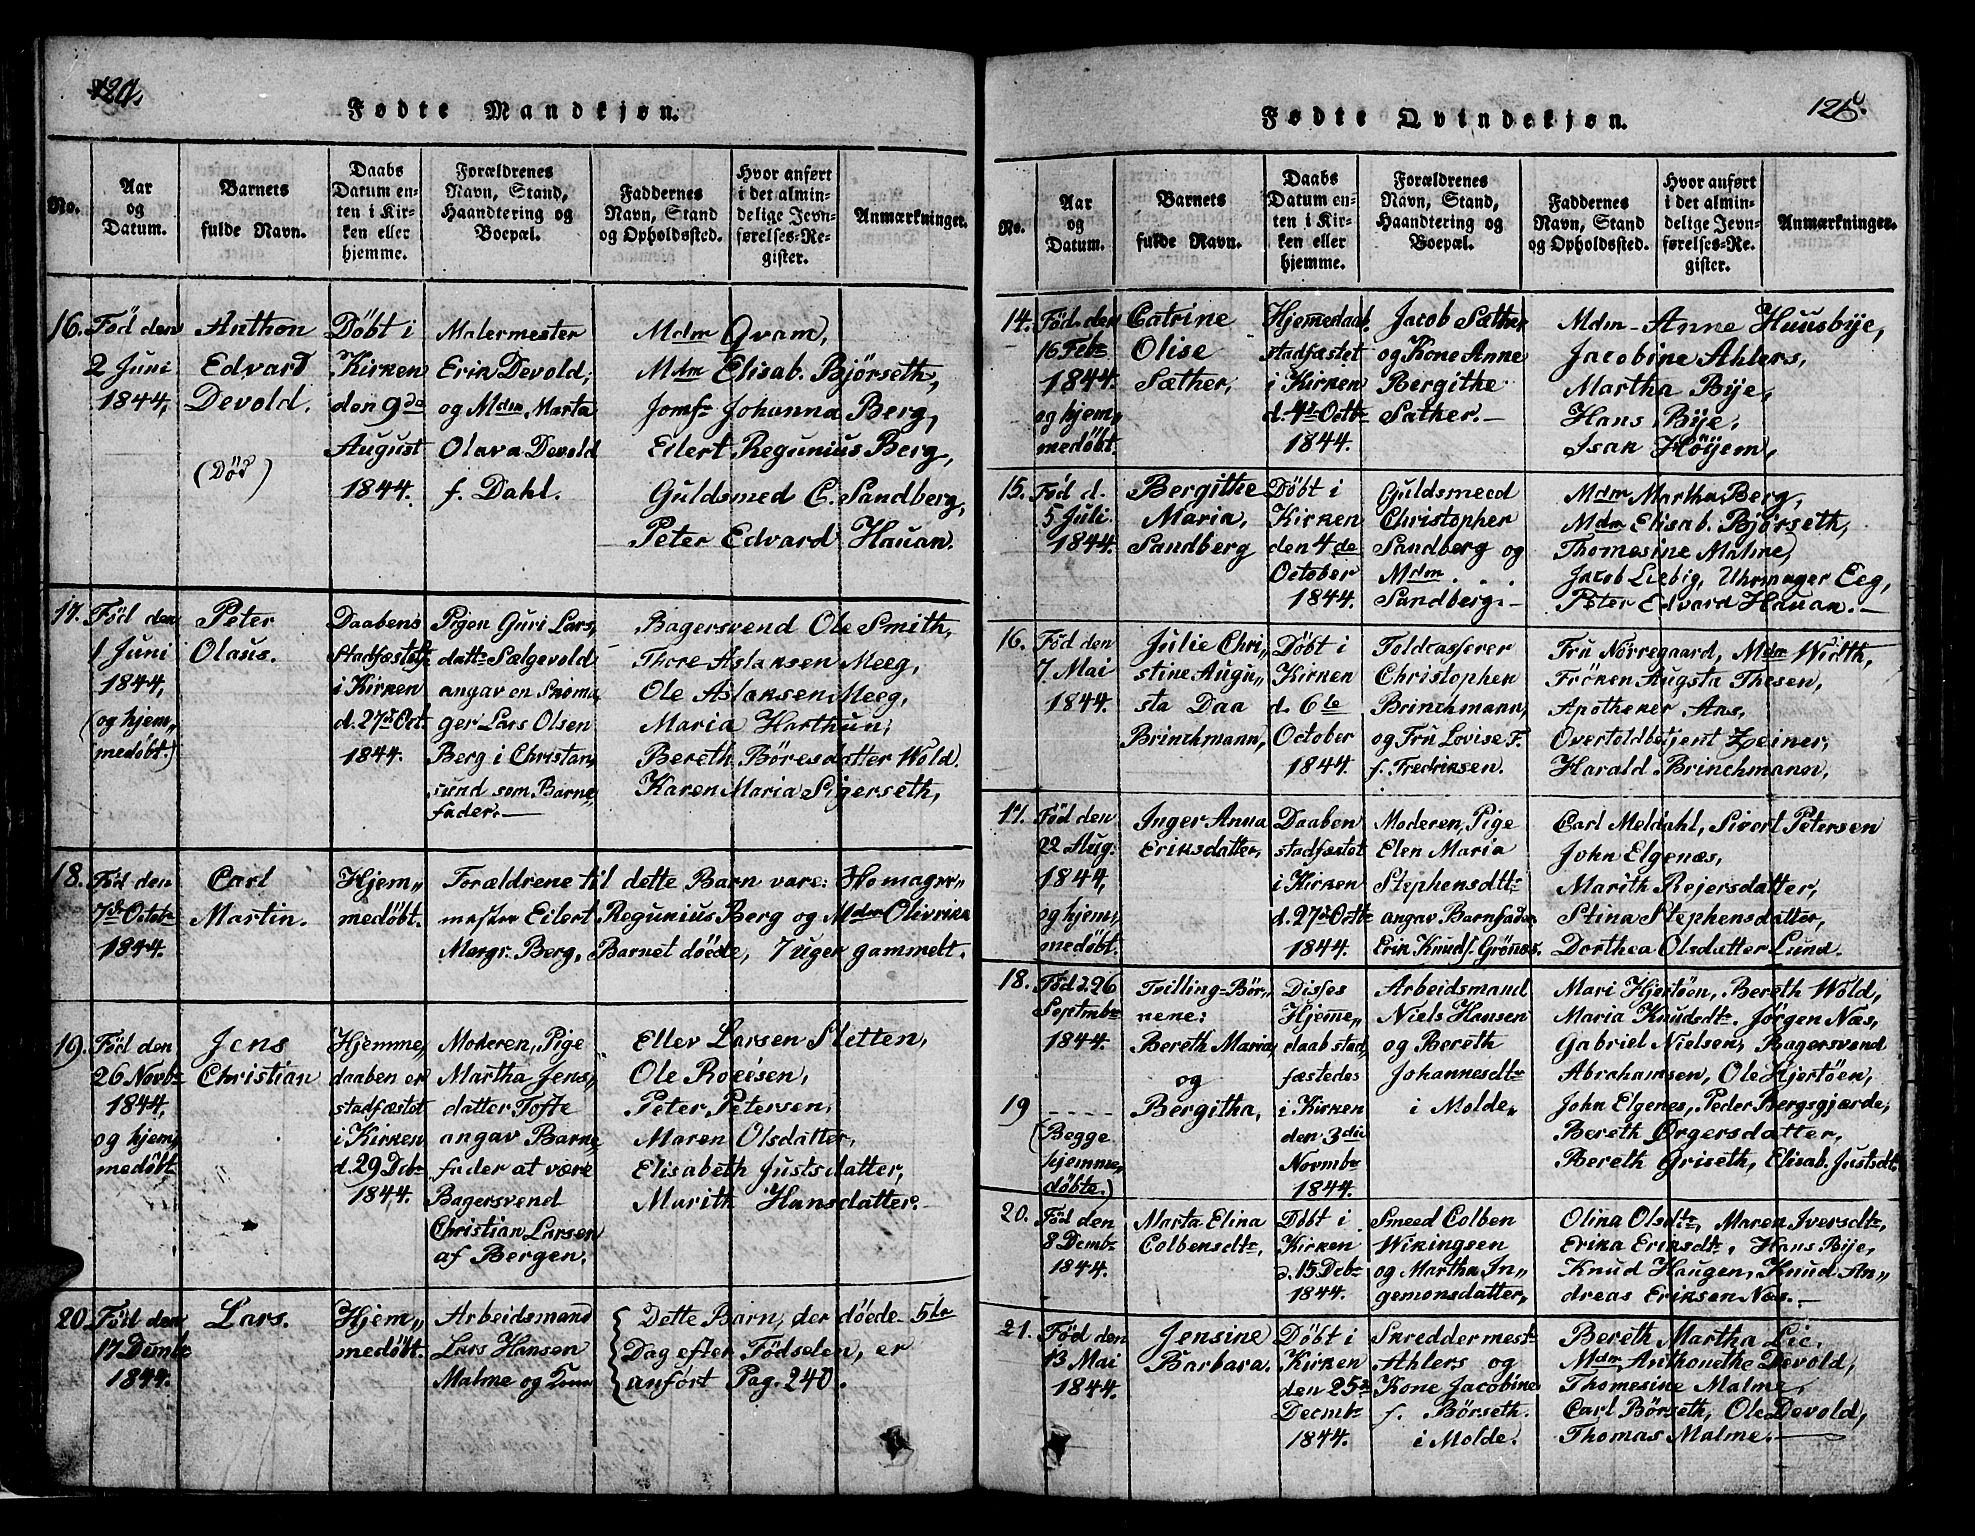 120.
Fødte Mandkjøn.
No.
Aar
og
Datum.
Barnets
fulde Navn.
Daabs
Datum en-
ten i Kir-
ken eller
hjemme.
Forældrenes
Navn, Stand,
Haandtering og
Boepæl.
Faddernes
Navn, Stand
og Opholdssted.
Hvor anført
i det almin-
delige Jevn-
førelses-Re-
gister.
Anmærkninger.
16.
Fød den
2 Juni
1844,
Anthon
Edvard
Devold.
(Død)
Döbt i
Kirken
den 9de
August
1844.
Malermester
Erik Devold,
og Mdm Marta
Olava Devold
f. Dahl.
Mdm Qvam,
Mdm Elisab. Björseth,
Jomfr Johanna Berg,
Eilert Regunius Berg,
Guldsmed C. Sandberg,
Peter Edvard Hauan.
17.
Fød den
1 Juni
1844,
(og hjem„
medøbt.)
Peter
Olaus.
Daabens
Stadfæstet
i Kirken
d. 27de Oct.
1844.
Pigen Guri Lars„
dattr Sælgevold
angav en Skoma„
ger Lars Olsen
Berg i Christan„
sund som Barne„
fader.—
Bagersvend Ole Smith,
Thore Aslaksen Meeg,
Ole Aslaksen Meeg,
Maria Harthun,
Bereth Böresdatter Wold.
Karen Maria Sigerseth,
18.
Fød den
7de Octbr
1844.
Carl
Martin.
Hjem„
medøbt.
Forældrene til dette Barn vare:
mester Eilert Regunius Berg og Mdm Olivrika
Margr. Berg, Barnet döede, 7 uger gammelt.
19.
Fød den
26 Novbr
1844,
og hjem„
medøbt.
Jens
Christian
Hjemme„
daaben er
stadfæstet
i Kirken
d. 29 Debr
1844.
Moderen, Pige
Martha Jens„
datter Tofte
angav Barne„
fader at være
Bagersvend
Christian Larsen
af Bergen.
Ellev Larsen Sletten,
Ole Roeesen,
Peter Petersen,
Maren Olsdatter,
Elisabeth Justsdatter,
Marith Hansdatter.
20.
Fød den
17 Dembr
1844.
Lars.
Hjem„
medøbt.
Arbeidsmand
Lars Hansen
Malme og Kone
Dette Barn, der döede 5te
Dag efter Födselen, er
anfört Pag. 240.
Fødte Qvindekjøn.
No.
Aar
og
Datum.
Barnets
fulde Navn.
Daabs
Datum en-
ten i Kir-
ken eller
hjemme.
Forældrenes
Navn, Stand,
Haandtering og
Boepæl.
Faddernes
Navn, Stand
og Opholdssted.
Hvor anført
i det almin-
delige Jevn-
førelses-Re-
gister.
Anmærkninger.
14.
Fød den
16 Febr
1844.
og hjem„
medøbt.
Catrine
Olise
Sæther,
Hjemedaab.
stadfæstet
i Kirken
d. 4de Octbr
1844.
Jacob Sæther
og Kone Anne
Bergithe
Sæther.—
Mdm— Anne Huusbÿe,
Jacobine Ahlers,
Martha Bÿe,
Hans Bÿe,
Isak Höÿem,
15.
Fød d.
5 Juli.
1844.
Bergithe
Maria,
Sandberg
Döbt i
Kirken
den 4de
October
1844.
Guldsmeed
Christopher
Sandberg og
Mdm . . .
Sandberg.—
Mdm Martha Berg,
Mdm Elisab. Björseth,
Thomesine Malme,
Jacob Liebig, Uhrmager Eeg,
Peter Edvard Hauan.—
16.
Fød den
7. Mai
1844.
Julie Chri„
stine Augu„
sta Daa
Brinchmann,
Döbt i
Kirken
d. 6te
October
1844.
Toldcasserer
Christophen
Brinchmann,
og Fru Lovise F.
f. Fredriksen.
Fru Nörregaard, Mdm Width,
Fröken Augsta Thesen,
Apotheker Aas,
Overtoldbetjent Zeiner,
Harald Brinchmann,
17.
Fød den
22 Aug.
1844,
og hjem„
medøbt.
Inger Anna
Eriksdatter,
Daaben
stadfæstet
i Kirken
d. 27de Octbr
1844.
Moderen, Pige
Elen Maria
Stephensdtr
angav Barnfader
Erik Knuds. Grönæs.
Carl Meldahl, Sivert Petersen
John Elgenæs,
Marith Rejersdatter,
Stina Stephensdatter,
Dorthea Olsdatter Lund.
18.
Fød d. 26
Septmbr
1844.
Tvilling=Bör„
nene:
Bereth Maria
og
19
Bergitha,
(Begge
hjemme„
døbte.)
Disses
Hjeme„
daab stad„
fæstedes
i Kirken
den 3die
Novmbr
1844.
Arbeidsmand
Niels Hansen
og Bereth
Johannesdtr
i Molde,
Mari Hjertöen, Bereth Wold,
Maria Knudsdtr. Jörgen Næs,
Gabriel Nielsen, Bagersvend
Abrahamsen, Ole Hjertöen,
John Elgenes, Peder Bergsgjærde,
Bereth Ørgersdatter,
Bereth Griseth, Elisab. Justsdtr.
20.
Fød den
8 Dembr
1844.
Marta Elina
Colbensdtr,
Döbt i
Kirken
d. 15 Debr
1844.
Smeed Colben
Wikingsen
og Martha In„
gemonsdatter,
Olina Olsdtr, Maren Iversdtr,
Erika Eriksdtr, Hans Bÿe,
Knud Haugen, Knud An„
dreas Eriksen Næs.—
21.
Fød den
13 Mai
1844.
Jensine
Barbara.
Döbt i
Kirken
den 25de
Decmbr
1844.
Skreddermest.
Ahlers og
Kone Jacobine
f. Börseth.
i Molde.
Bereth Martha Lie,
Mdm Anthonethe Devold,
Thomesine Malme,
Carl Börseth, Ole Devold,
Thomas Malme.—